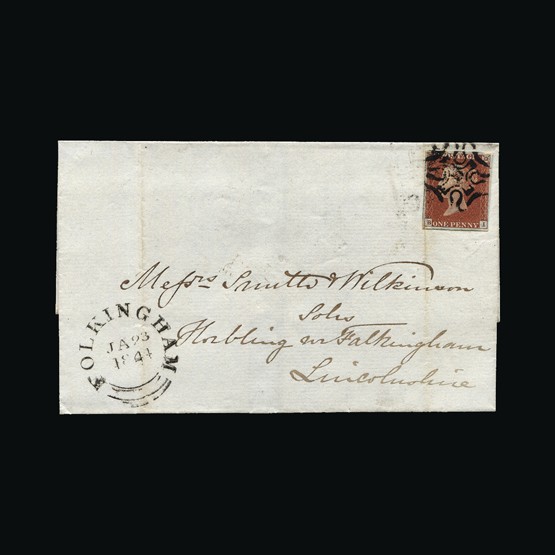 ONE PENNY
Messrs Smith & Wilkinson
Solrs
Horbling nr Falkingham
Lincolnshire
FOLKINGHAM
JA 23
1844